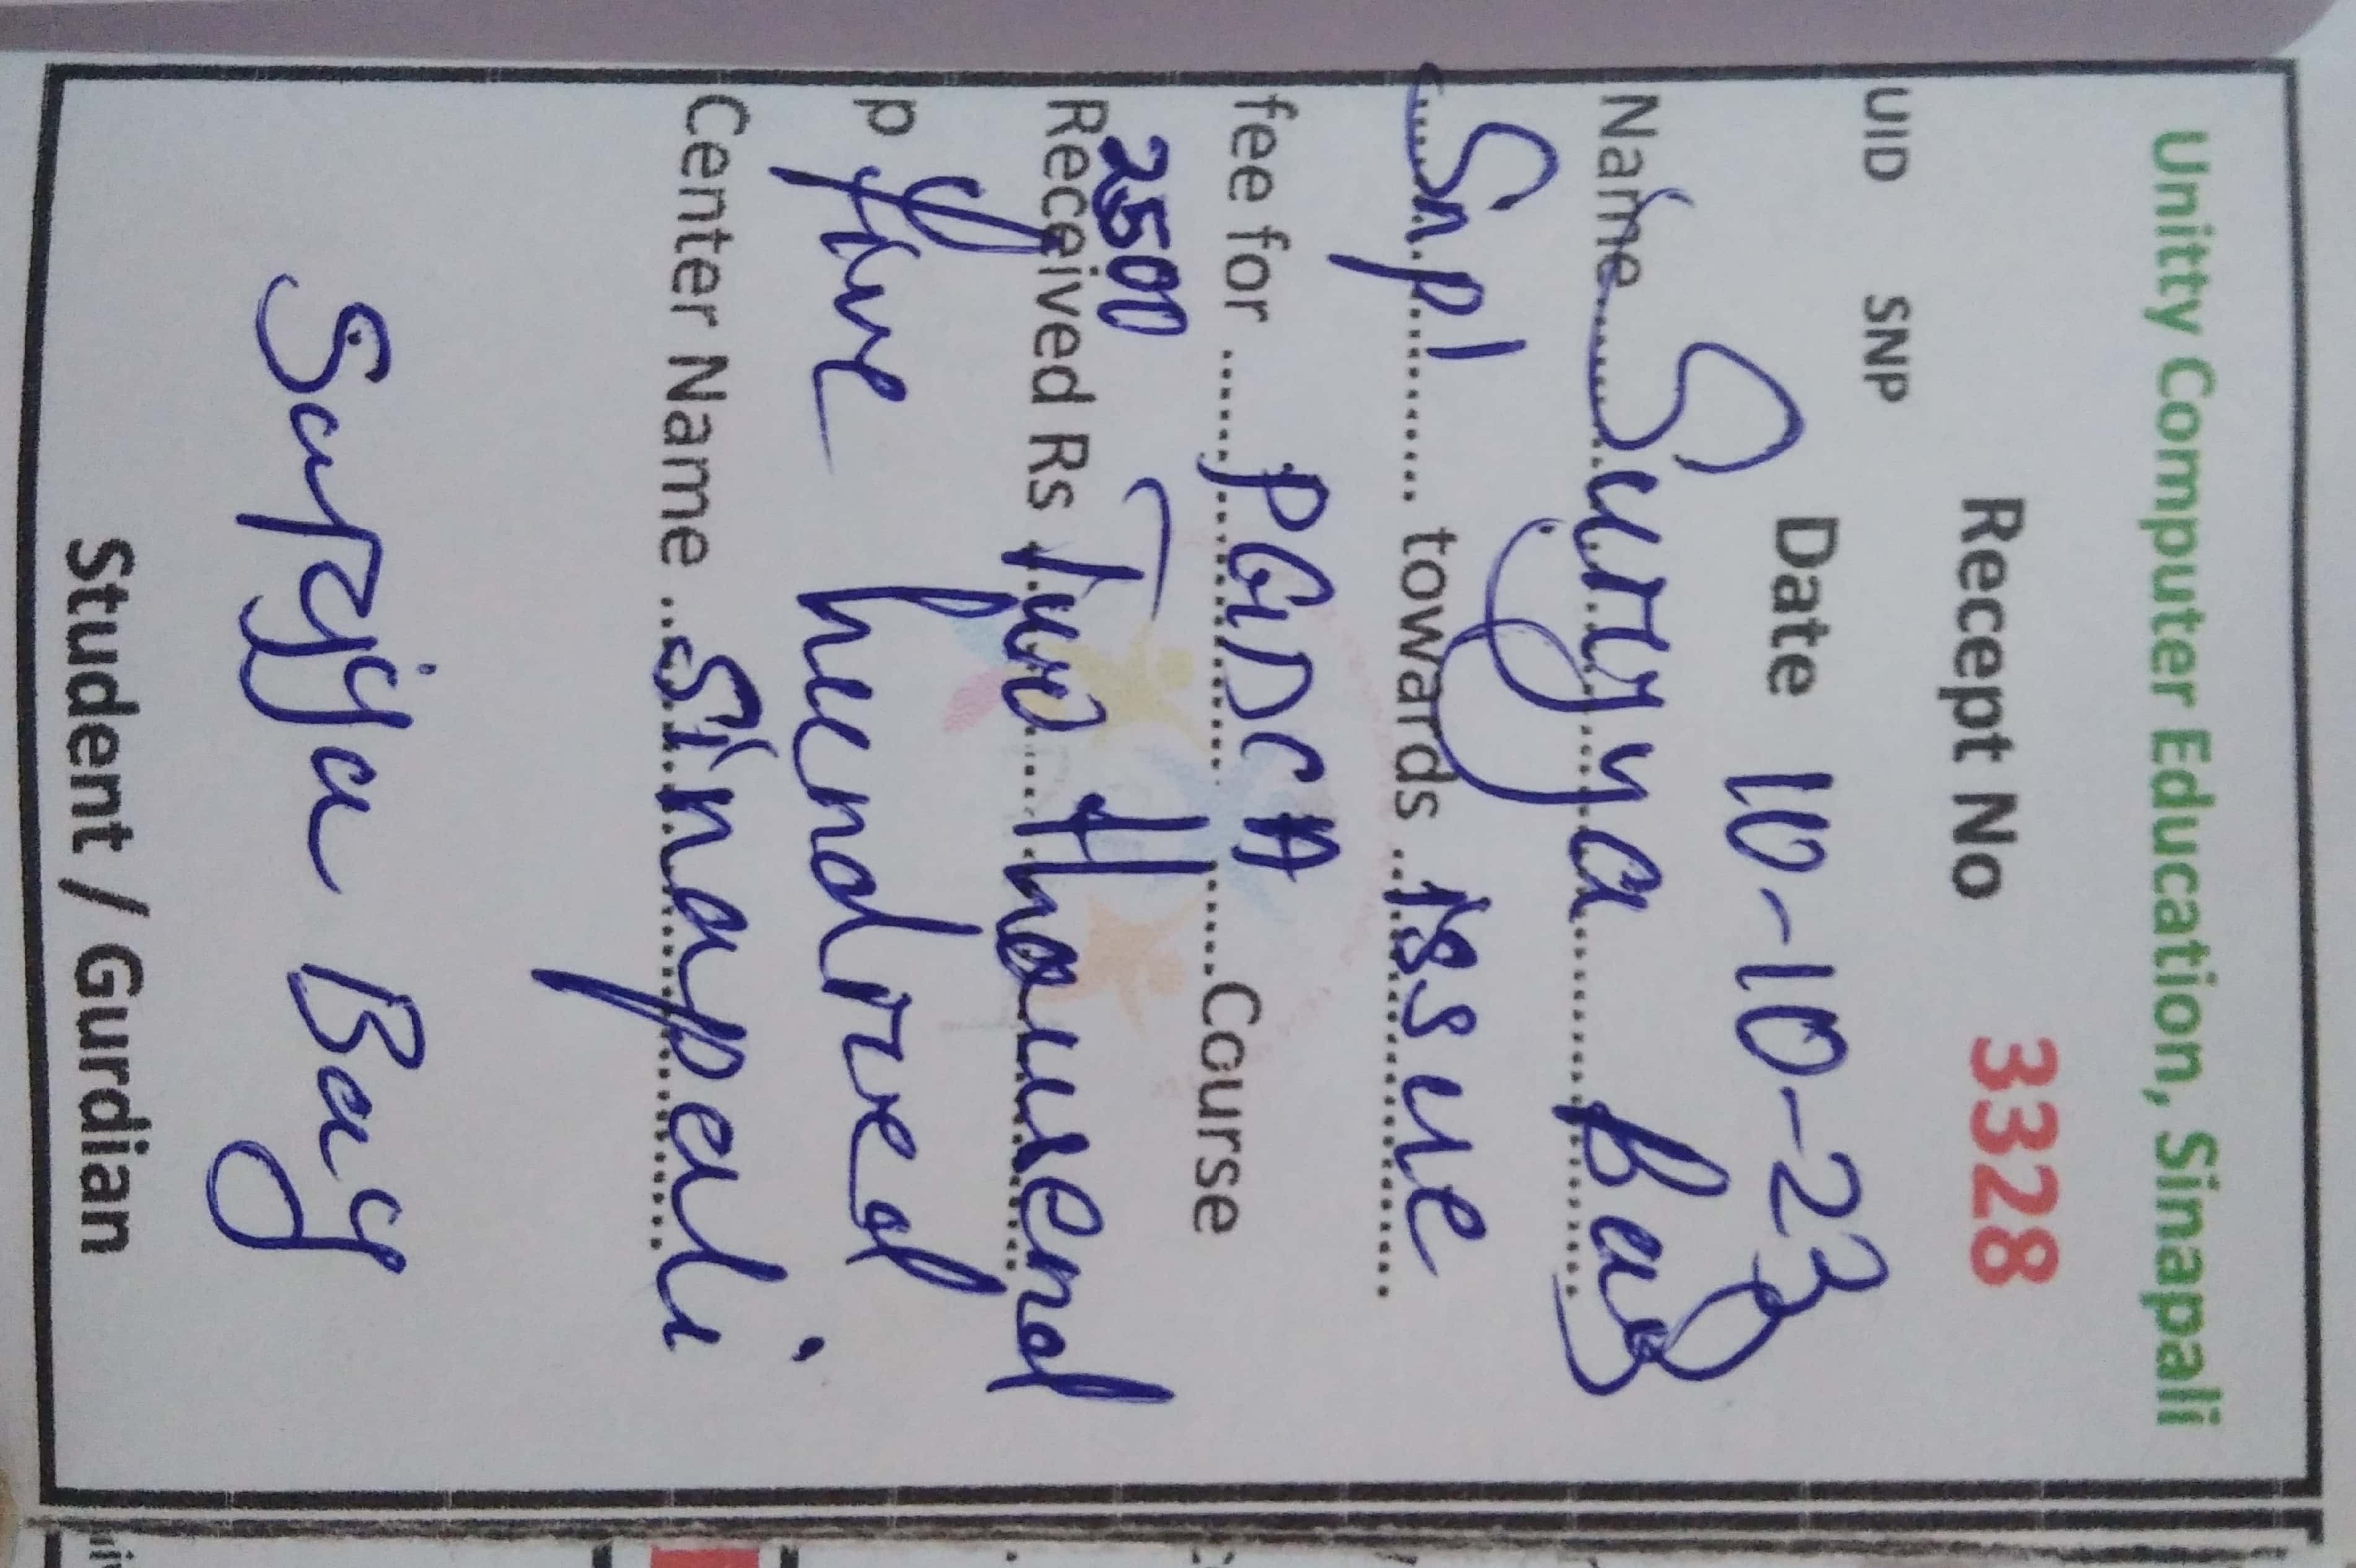 Unitty Computer Education, Sinapali
Recept No 3328
UID SNP
Date 10-10-23
Name Surjya Bag
Snpl towards Issue
fee for PGDCA Course
2500
Received Rs Two thousend
p five hundred
Center Name Sinapali
Surjya Bag
Student / Gurdian